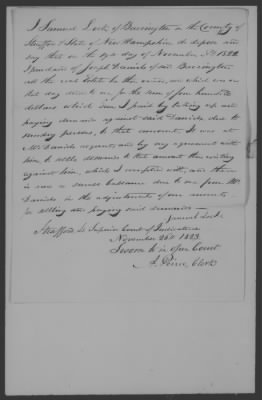 I Samuel Locke of Barrington in the County of
Strafford & State of New Hampshire do depose and
say that on the day of November A.D. 1822
I purchased of Joseph Daniels of said Barrington
all the real estate he then owned, and which was on
that day deeded to me for the sum of four hundred
dollars which sum I paid by taking up and
paying demands against said Daniels due to
sundry persons, to that amount. It was at
Mr Daniels request and by my agreement with
him to settle demands to that amount then existing
against him, which I complied with, and there
is now a small ballance due to me from Mr
Daniels in the adjustment of our accounts
for settling and paying said demands —
Samuel Locke
Strafford Ss Superior Court of Judicature
November 26th 1823.
Sworn to in open Court
A. Peirce Clerk